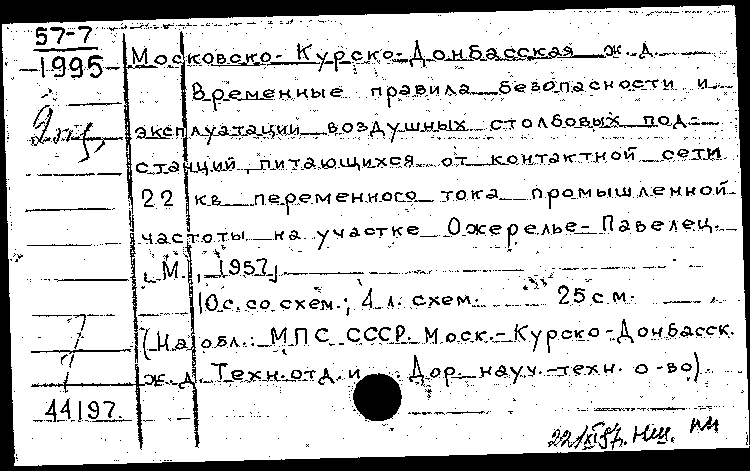 57-7
1995
Московско-Курско-Донбасская ж.д.
Временные правила безопасности и
2 экз,
эксплуатации воздушных столбовых под-
станций, питающихся от контактной сети
22 кв переменного тока промышленной
частоты на участке Ожерелье-Павелец.
[М.], 1957,
10 с. со схем.; 4 л. схем. 25 см.
(На обл.: МПС СССР. Моск.-Курско-Донбасск.
ж.д. Техн. отд. и Дор. науч.-техн. о-во).
7
44197.
22/XI 57г.